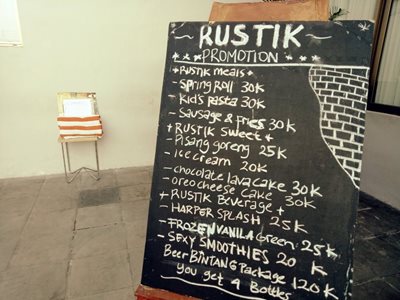 ~ RUSTIK ~
PROMOTION
+ RUSTIK meals +
- SPRING ROLL 30K
- Kid's pasta 30K
- Sausage & fries 30K
+ RUSTIK SWEET +
- Pisang goreng 25K
- ice cream 20K
- chocolate lava cake 30K
- oreo cheese cake 30K
+ RUSTIK Beverage +
- HARPER SPLASH 25K
- FROZEN VANILA Green: 25K
- SEXY SMOOTHIES 20 K
Beer BINTANG Package 120K
you get 4 Bottles